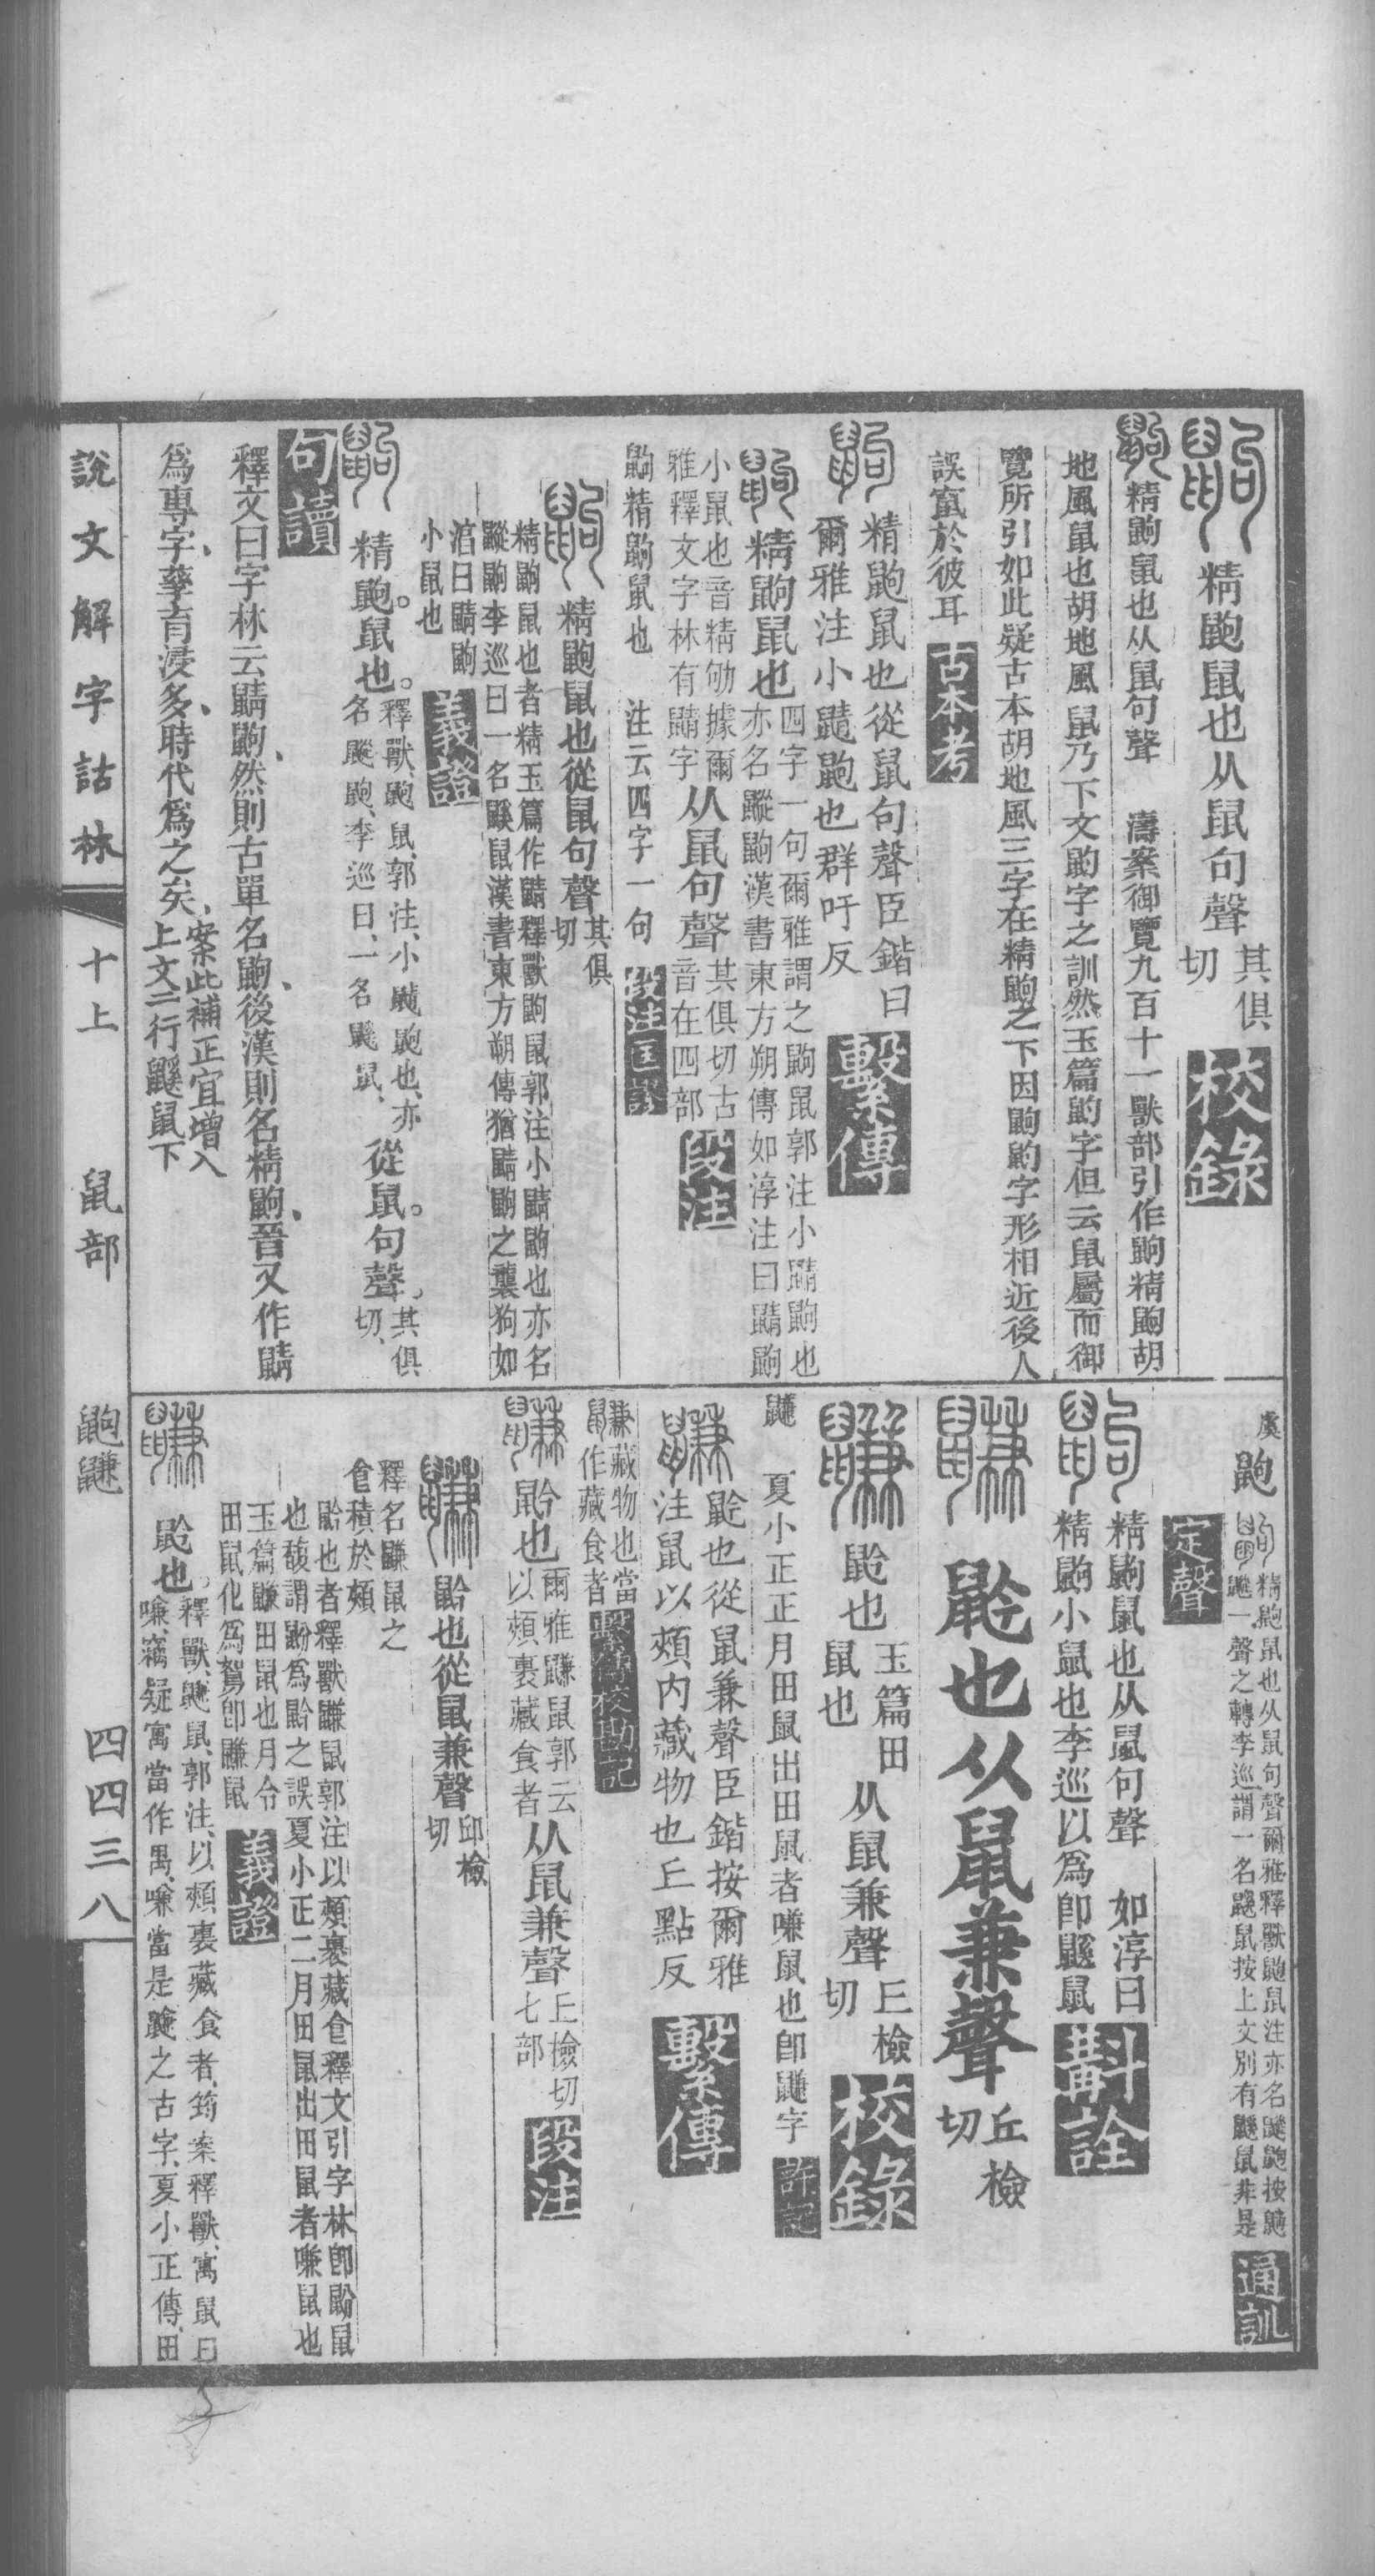 精鼩鼠也从鼠句聲其俱切 校錄
精鼩鼠也从鼠句聲　濤案御覽九百十一獸部引作鼩精鼩胡
地風鼠也胡地風鼠乃下文鼩字之訓然玉篇鼩字但云鼠屬而御
覽所引如此疑古本胡地風三字在精鼩之下因鼩鼩字形相近後人
誤竄於彼耳 古本考
精鼩鼠也從鼠句聲臣鍇曰
爾雅注小鼱鼩也群吁反 繫傳
精鼩鼠也四字一句爾雅謂之鼩鼠郭注小鼱鼩也
亦名䶆鼩漢書東方朔傳如淳注曰鼱鼩
小鼠也音精劬據爾
雅釋文字林有鼱字从鼠句聲其俱切古音在四部 段注
鼩精鼩鼠也　注云四字一句 段注匡謬
精鼩鼠也從鼠句聲其俱切
精鼩鼠也者精玉篇作鼱釋獸鼩鼠郭注小鼱鼩也亦名
䶆鼩李巡曰一名鼷鼠漢書東方朔傳猶鼱鼩之襲狗如
淳曰鼱鼩
小鼠也 義證
精鼩鼠也釋獸鼩鼠郭注小鼱鼩也亦
名䶆鼩李巡曰一名鼷鼠從鼠句聲其俱切
句讀
釋文曰字林云鼱鼩然則古單名鼩後漢則名精鼩晉又作鼱
為專字孳育浸多時代為之矣案此補正宜增入
上文二行鼷鼠下
說文解字詁林　十上　鼠部　鼩鼸　四四三八
虞 鼩 精鼩鼠也从鼠句聲爾雅釋獸鼩鼠注亦名䶆鼩按
一聲之轉李巡謂一名鼷鼠按上文別有鼷鼠非是 通訓
定聲
精鼩鼠也从鼠句聲　如淳曰
精鼩小鼠也李巡以為即鼷鼠 斠詮
鼢也从鼠兼聲丘檢切
鼢也玉篇田鼠也从鼠兼聲丘檢切 校錄
鼸　夏小正正月田鼠出田鼠者嗛鼠也即鼸字 許記
也從鼠兼聲臣鍇按爾雅
注鼠以頰內藏物也丘點反 繫傳
鼸藏物也當
作藏食者 繫傳校勘記
也爾雅鼸鼠郭云
以頰裏藏食者从鼠兼聲丘檢切七部 段注
也從鼠兼聲邱檢切
釋名鼸鼠之
食積於頰
也者釋獸鼸鼠郭注以頰裏藏食釋文引字林即鼢鼠
也馥謂鼢為之誤夏小正二月田鼠出田鼠者嗛鼠也
玉篇鼸田鼠也月令
田鼠化為鴽即鼸鼠 義證
也釋獸鼸鼠郭注以頰裏藏食者筠案釋獸寓鼠曰
嗛竊疑寓當作禺嗛當是鼸之古字夏小正傳田